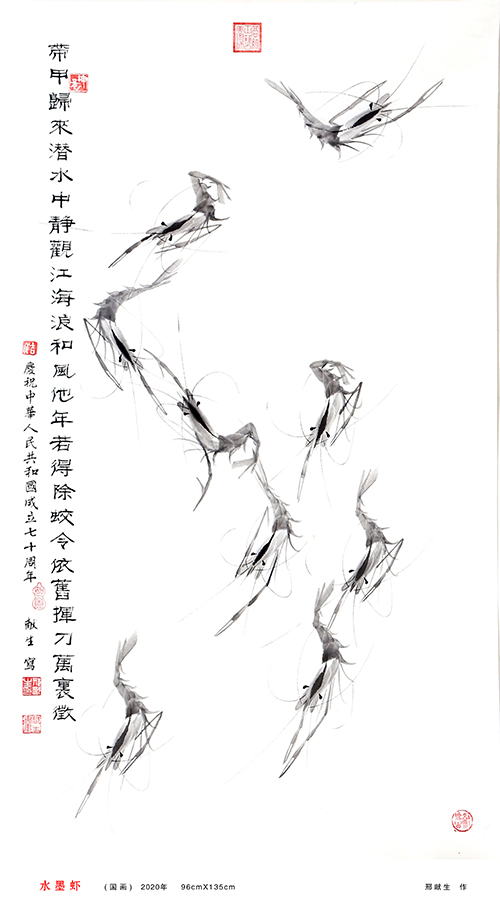 帶甲歸來潛水中靜觀江海浪和風他年若得除蛟令依舊揮刀萬裏徵
慶祝中華人民共和國成立七十周年 献生 寫
水墨虾 (国画) 2020年 96cmX135cm 邢献生 作